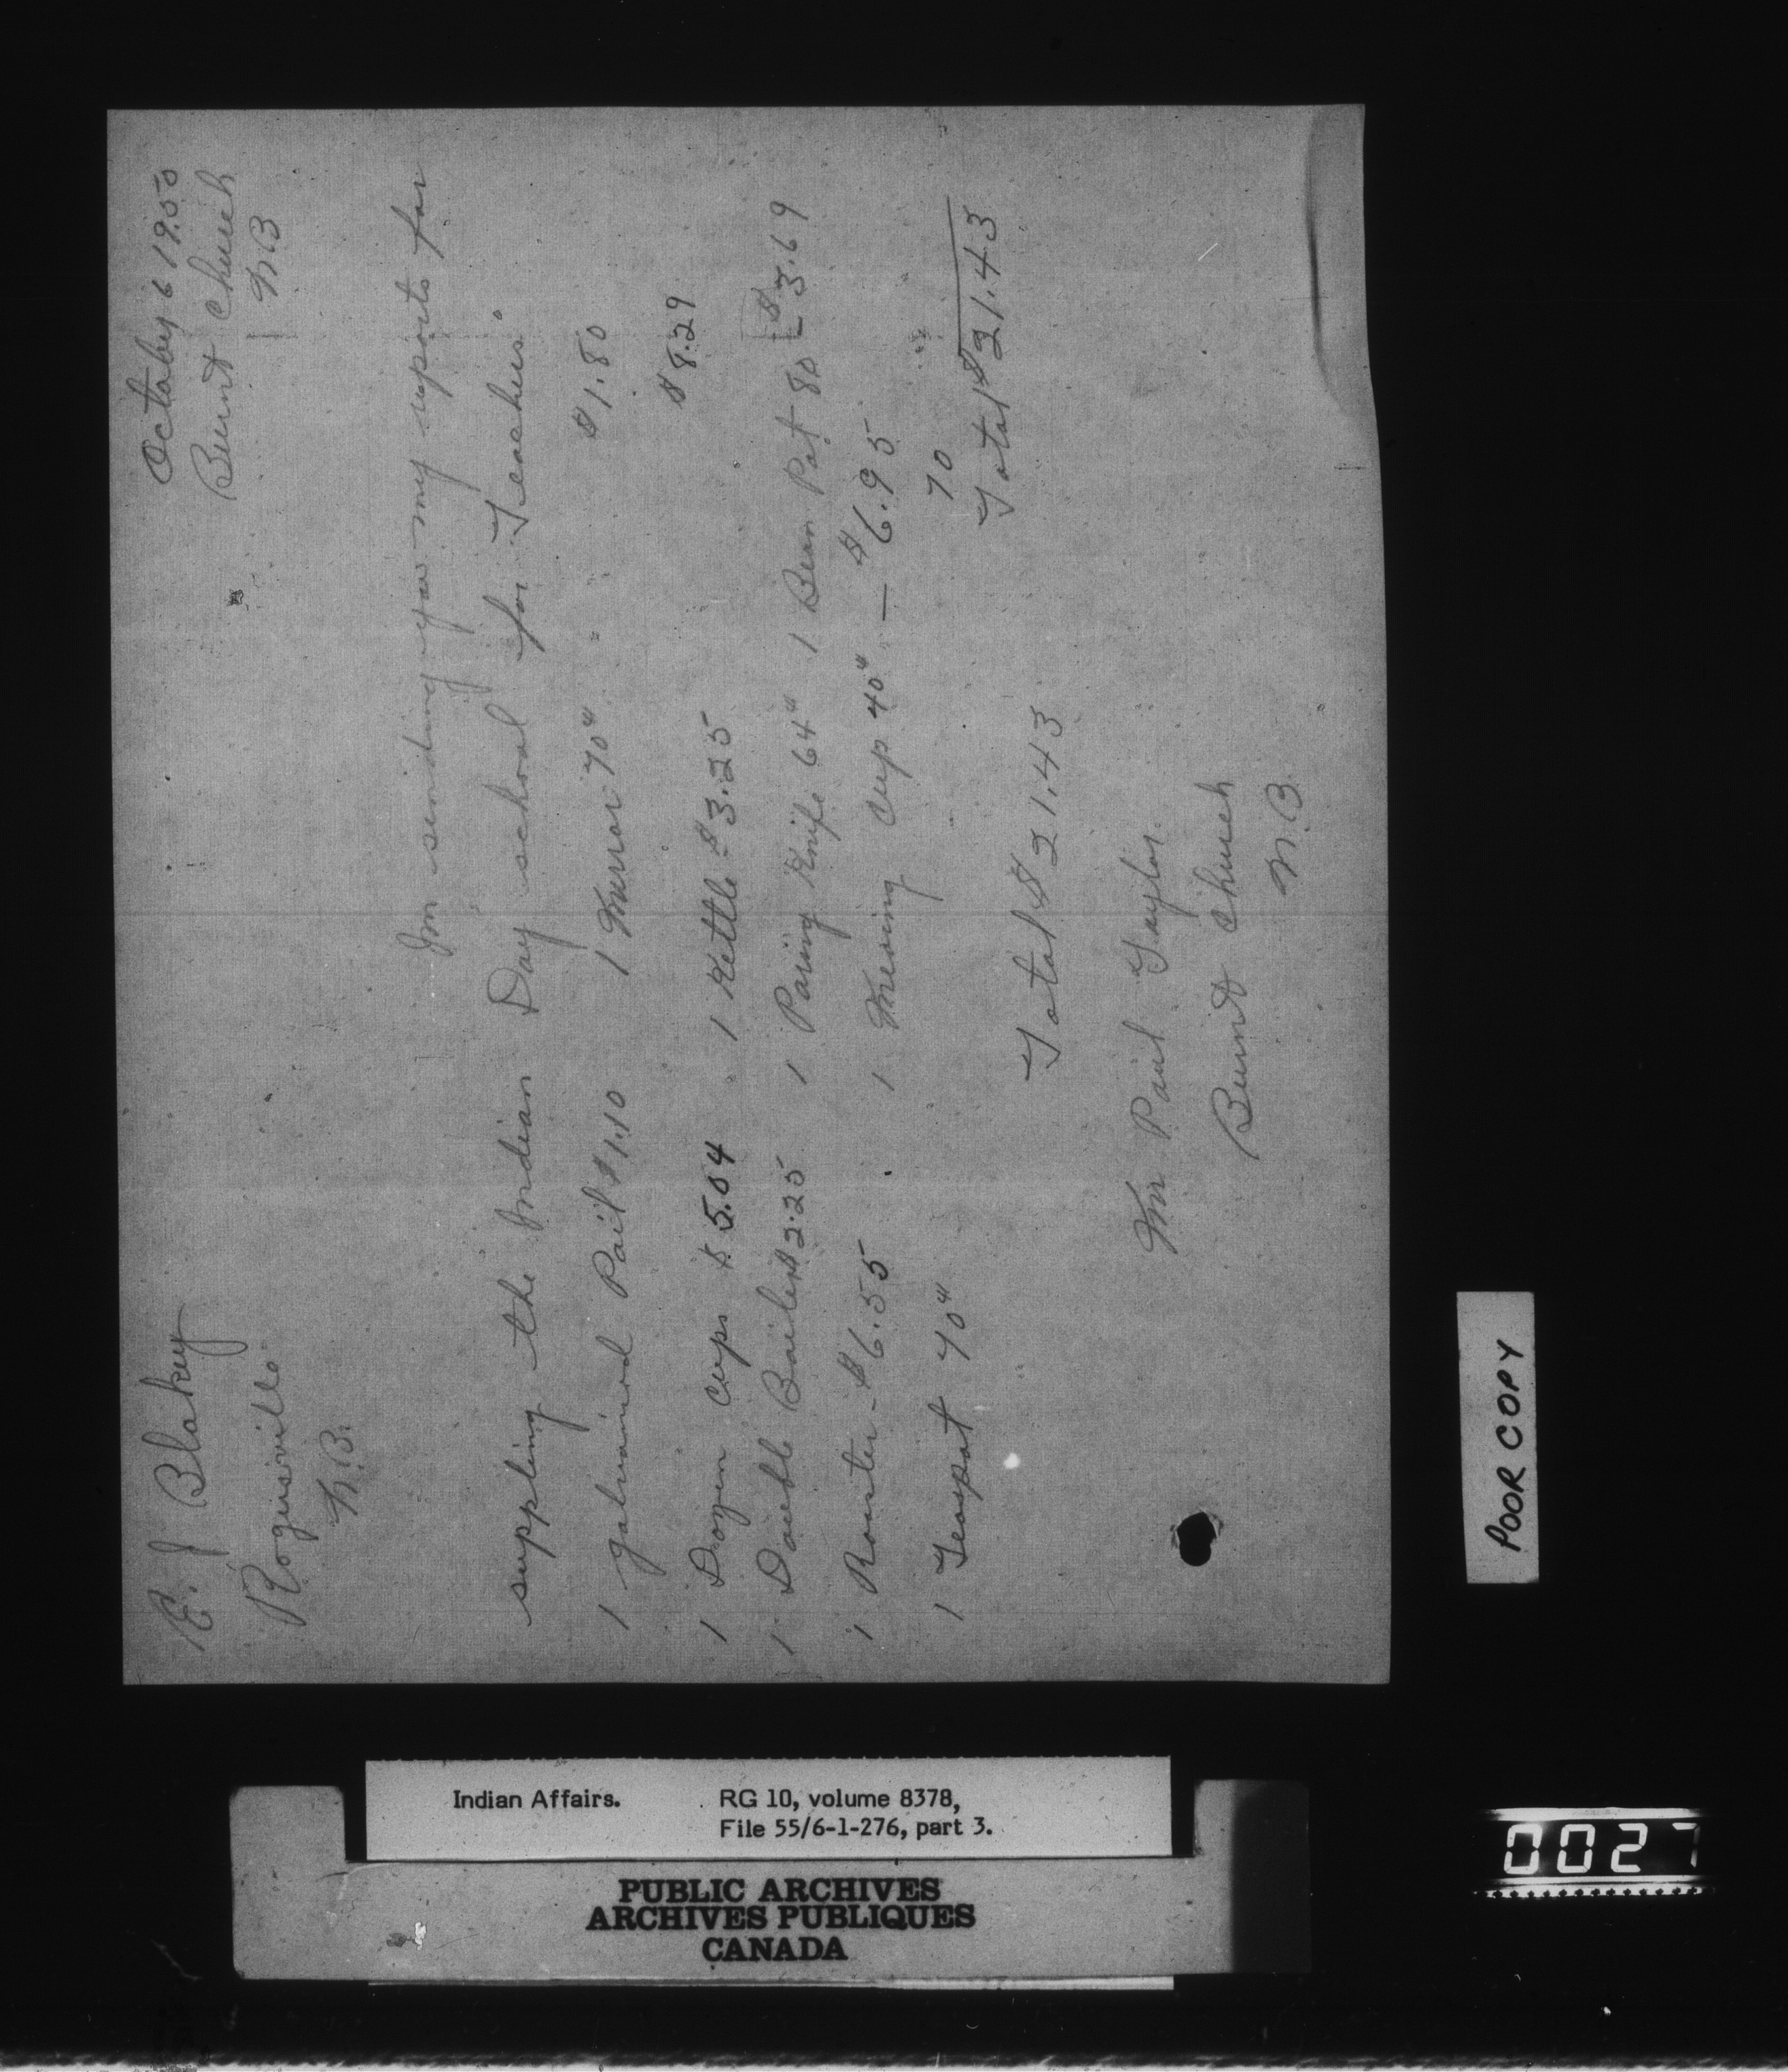 October 6 1950
Burnt Church
N.B
E. J Blakey
Rogersville
N.B.
Im sending you my reports for
suppling the Indian Day school for Teacher.
1 galvanired Pail $1.10 1 Mirror 70¢ $1.80
$8.29
1 Dozen cups $5.04 1 Kettle $3.25
1 Double Boiler $2.25 1 Paring Knife 64¢ 1 Bean Pot 80 - $3.69
1 Roaster - $6.55 1 Mesuring cup 40¢ — $6.95
1 Teaspot 70¢ 70
Total $21.43
Total $21.43
Mr Paul Taylor.
Burnt Church
N.B.
POOR COPY
Indian Affairs. RG 10, volume 8378,
File 55/6-1-276, part 3.
PUBLIC ARCHIVES
ARCHIVES PUBLIQUES
CANADA
0027